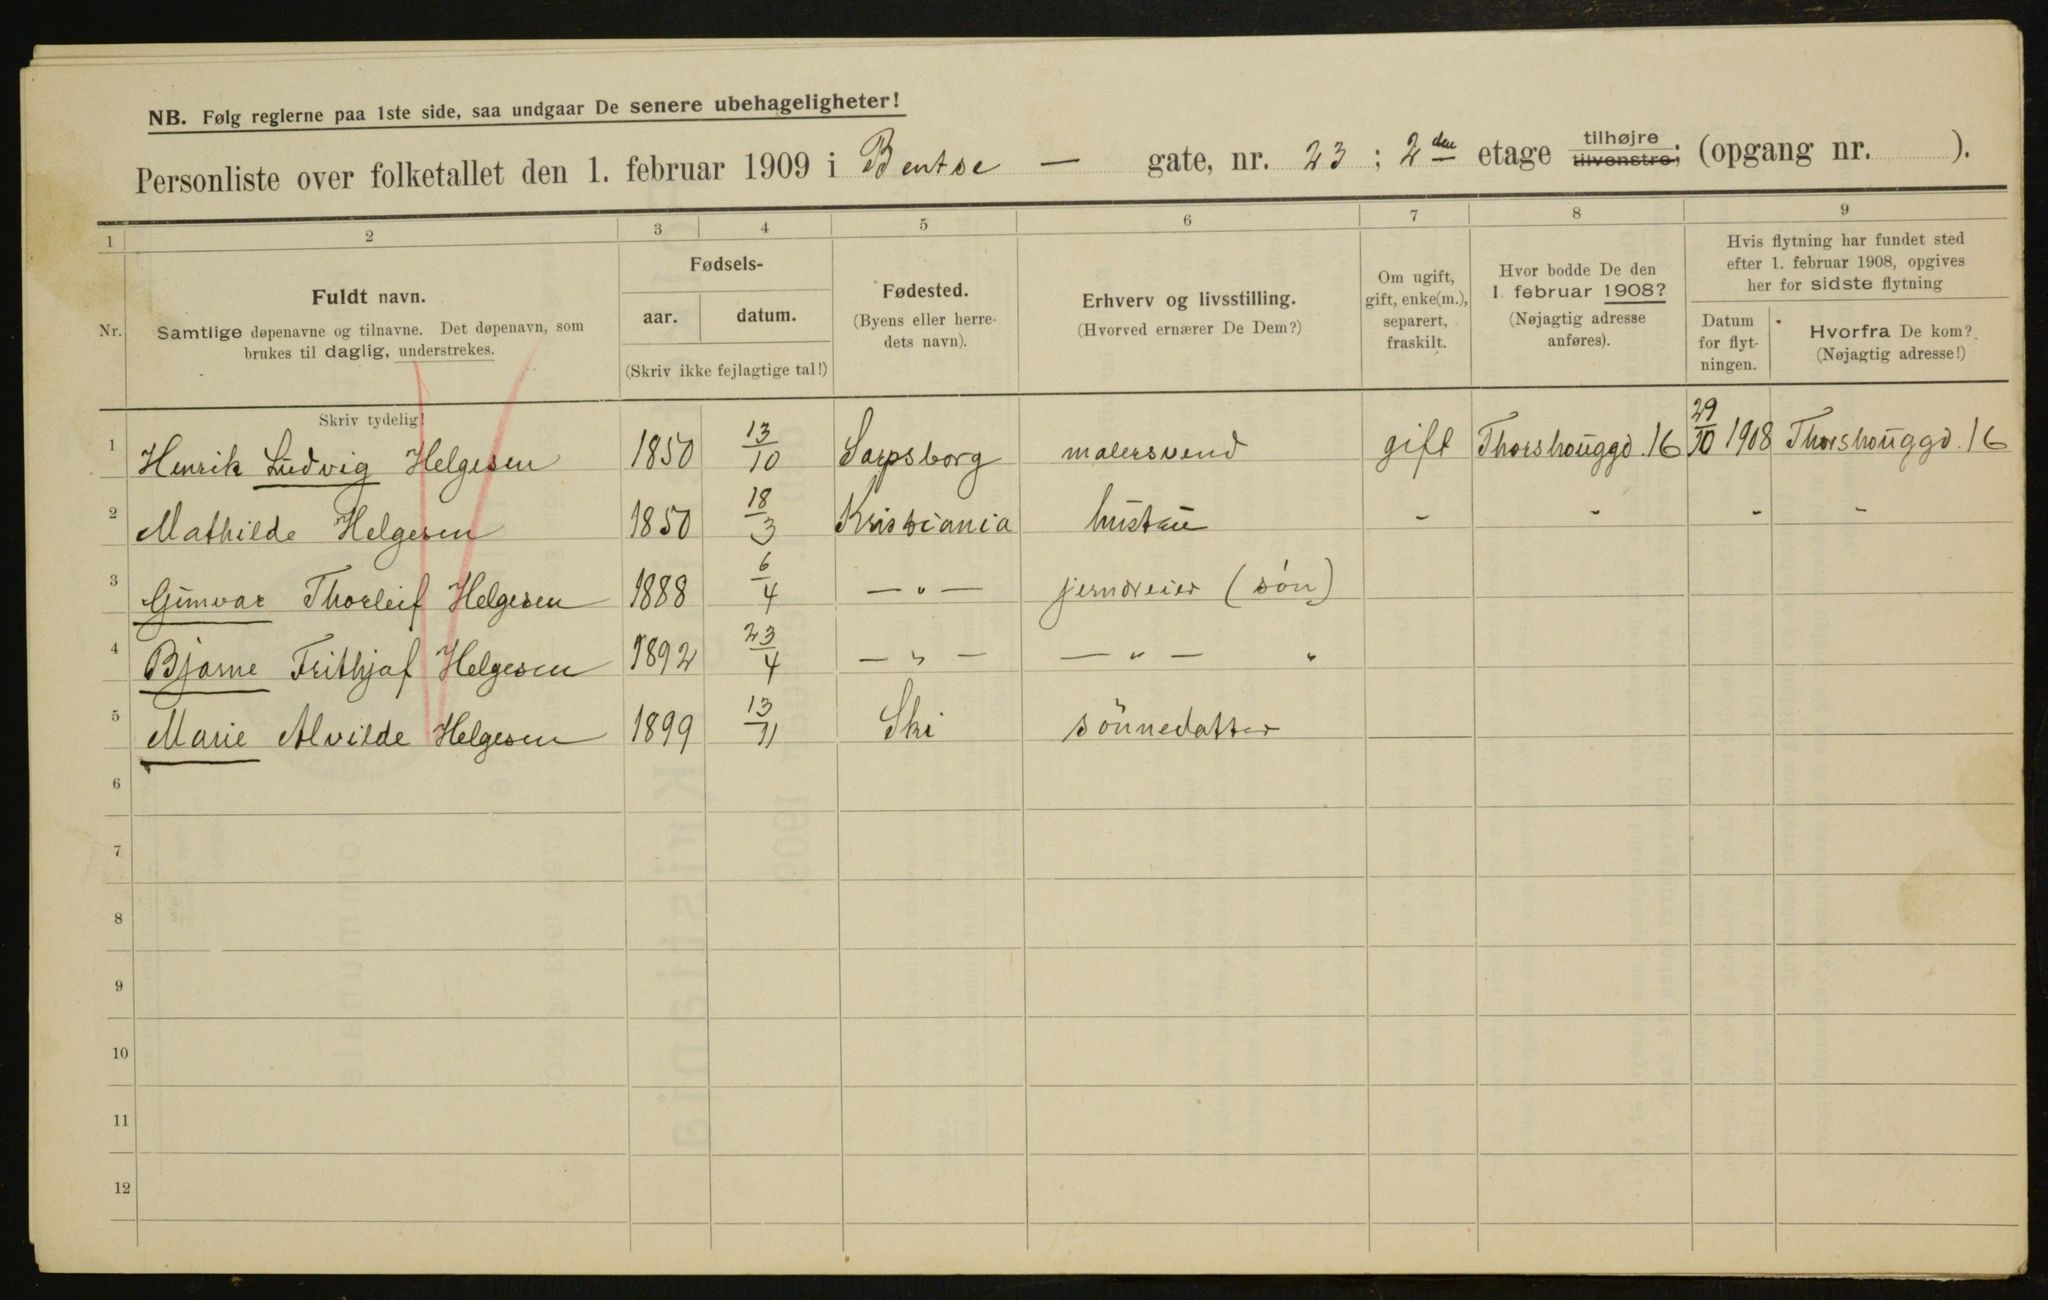 NB. Følg reglerne paa 1ste side, saa undgaar De senere ubehageligheter!
Personliste over folketallet den 1. februar 1909 i Bentse — gate, nr. 23 ; 2den etage tilhøjre tilvenstre; (opgang nr. ).
1 2 3 4 5 6 7 8 9
Nr.
Fuldt navn.
Samtlige døpenavne og tilnavne. Det døpenavn, som
brukes til daglig, understrekes.
Skriv tydelig!
Fødsels-
aar. datum.
(Skriv ikke fejlagtige tal!)
Fødested.
(Byens eller herre-
dets navn).
Erhverv og livsstilling.
(Hvorved ernærer De Dem?)
Om ugift,
gift, enke(m.),
separert,
fraskilt.
Hvor bodde De den
1 februar 1908?
(Nøjagtig adresse
anføres).
Hvis flytning har fundet sted
efter 1. februar 1908, opgives
her for sidste flytning
Datum
for flyt-
ningen.
Hvorfra De kom?
(Nøjagtig adresse!)
1 Henrik Ludvig Helgesen 1850 13/10 Sarpsborg malersvend gift Thorshouggd. 16 29/10 1908 Thorshouggd. 16
2 Mathilde Helgesen 1850 18/3 Kristiania hustru - - - -
3 Gunvar Thorleif Helgesen 1888 6/4 — " — jerndreier (søn)
4 Bjarne Frithjof Helgesen 1892 23/4 — " — — " — "
5 Marie Alvilde Helgesen 1899 13/11 Ski sönnedatter
6
7
8
9
10
11
12